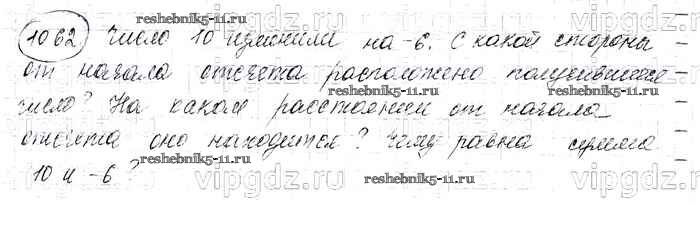 reshebnik5-11.ru
1062 Число 10 изменили на -6. С какой стороны
от начала отсчета расположено получившееся
vipgdz.ru vipgdz.ru
reshebnik5-11.ru
число? На каком расстоянии от начала
отсчета оно находится? Чему равна сумма
reshebnik5-11.ru
10 и -6?
reshebnik5-11.ru
vipgdz.ru vipgdz.ru